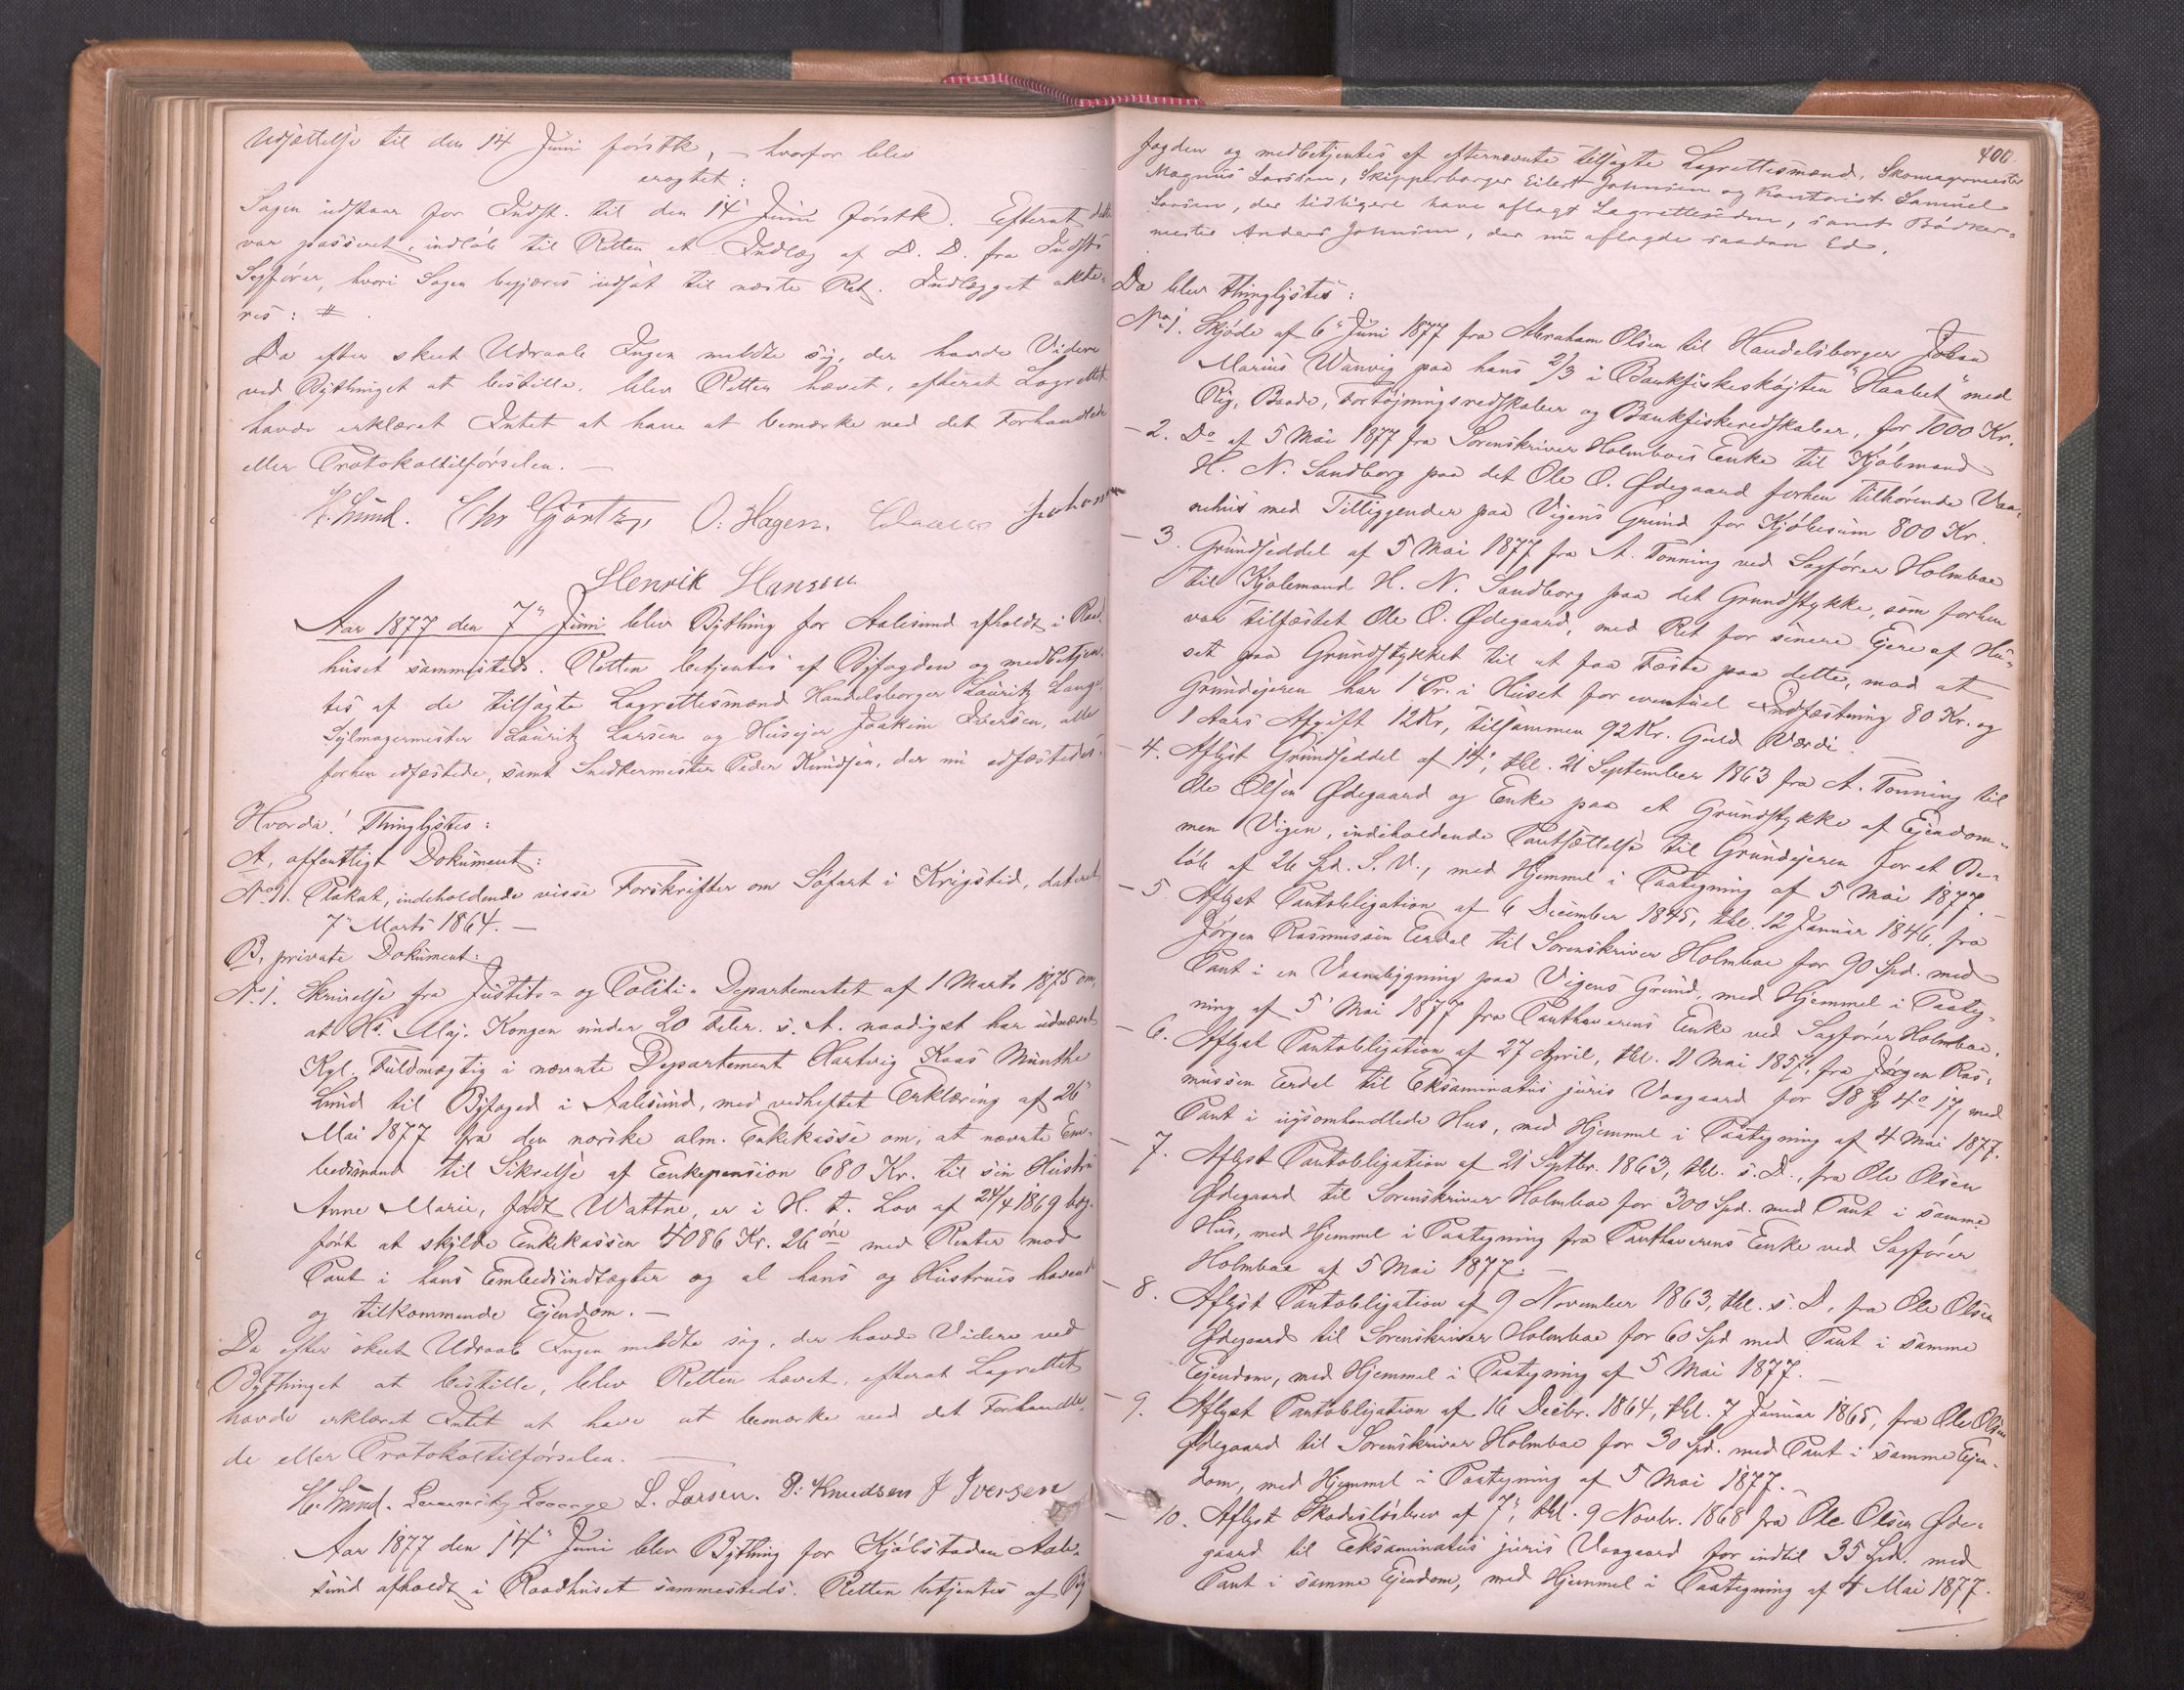 Udsættelse til den 14 Juni førstk, – hvorfor blev
eragtet:
Sagen udstaar for Indst. til den 14 Juni førstk. Efterat dette
var passeret, indløb til Retten et Indlæg af D. D. fra Indsts
Sagfører, hvori Sagen begjæres udsat til næste Ret. Indlægget akte-
res: #.
Da efter skeet Udraab Ingen meldte sig, der havde Videre
ved Bythinget at bestille, blev Retten hævet, efterat Lagrettet
havde erklæret Intet at have at bemærke ved det Forhandlede
eller Protokoltilførselen. —
H. Lund. Chr Gjørtz, O: Hagen, Johansen
Henrik Hansen
Aar 1877 den 7" Juni blev Bything for Aalesund afholdt i Raad-
huset sammesteds. Retten betjentes af Byfogden og medbetjen-
tes af de tilsagte Lagrettesmænd Handelsborger Lauritz Lange,
Seilmagermester Lauritz Larsen og Huseier Joakim Iversen, alle
forhen edfæstede, samt Snedkermester Peder Knudsen, der nu edfæstedes.
Hvorda! Thinglystes:
A, offentligt Dokument:
No 1. Plakat, indeholdende visse Forskrifter om Søfart i Krigstid, dateret
7" Marts 1864. —
B, private Dokument:
No 1. Skrivelse fra Justits- og Politi-Departementet af 1 Marts 1875 om,
at Hs. Maj. Kongen under 20 Febr. s. A. naadigst har udnævnt
Kgl. Fuldmægtig i nævnte Departement Hartvig Kaas Munthe
Lund til Byfoged i Aalesund, med vedheftet Erklæring af 26
Mai 1877 fra den norske alm. Enkekasse om, at nævnte Em-
bedsmand til Sikrelse af Enkepension 680 Kr. til sin Hustru
Anne Marie, født Wattne, er i H. t. Lov af 24/4 1869 bog-
ført at skylde Enkekassen 4086 Kr. 26 øre med Renter mod
Pant i hans Embedsindtægter og al hans og Hustrues havende
og tilkommende Eiendom. —
Da efter skeet Udraab Ingen meldte sig, der havde Videre ved
Bythinget at bestille, blev Retten hævet, efterat Lagrettet
havde erklæret Intet at have at bemærke ved det Forhandle-
de eller Protokoltilførselen. —
H. Lund. Lauritz Lange L. Larsen. P: Knudsen J Iversen
Aar 1877 den 14" Juni blev Bything for Kjøbstaden Aale-
sund afholdt i Raadhuset sammesteds. Retten betjentes af By
400
fogden og medbetjentes af efternævnte tilsagte Lagrettesmænd, Skomagermester
Magnus Larsen, Skipperborger Eilert Johnsen og Kontorist Samuel
Larsen, der tidligere have aflagt Lagretteseden, samt Bødker-
mester Anders Johnsen, der nu aflagde saadan Ed.
Da blev thinglystes:
No 1. Skjøde af 6" Juni 1877 fra Abraham Olsen til Handelsborger Johan
Marius Wanvig paa hans 2/3 i Bankfiskeskøjten "Haabet" med
Rig, Baade, Fortøjningsredskaber og Bankfiskeredskaber, for 1000 Kr.
– 2. Do af 5 Mai 1877 fra Sorenskriver Holmboes Enke til Kjøbmand
H. N. Sandborg paa det Ole O. Ødegaard forhen tilhørende Vaa-
nehus med Tilliggender paa Vigens Grund for Kjøbesum 800 Kr.
– 3. Grundseddel af 5 Mai 1877 fra A. Tonning ved Sagfører Holmboe
til Kjøbmand H. N. Sandborg paa det Grundstykke, som forhen
var tilfæstet Ole O. Ødegaard, med Ret for senere Ejere af Hu-
set paa Grundstykket til at faa Fæste paa dette, mod at
Grundejeren har 1 Pr. i Huset for eventuel Indfæstning 80 Kr. og
1 Aars Afgift 12 Kr, tilsammen 92 Kr. Guld Værdi. —
– 4. Aflyst Grundseddel af 14, thl. 21 September 1863 fra A. Tonning til
Ole Olsen Ødegaard og Enke paa et Grundstykke af Ejendom-
men Vigen, indeholdende Pantsættelse til Grundejeren for et Be-
løb af 26 Spd. S. V., med Hjemmel i Paategning af 5 Mai 1877. –
– 5. Aflyst Pantobligation af 6 December 1845, thl. 12 Januar 1846, fra
Jørgen Rasmussen Erdal til Sorenskriver Holmboe for 90 Spd. med
Pant i en Vaanebygning paa Vigens Grund, med Hjemmel i Paateg-
ning af 5 Mai 1877 fra Panthaverens Enke ved Sagfører Holmboe.
– 6. Aflyst Pantobligation af 27 April, thl. 11 Mai 1857, fra Jørgen Ras-
mussen Erdal til Eksaminatus juris Vaagaard for 98 Sp 4 o 17, med
Pant i ugsomhandlede Hus, med Hjemmel i Paategning af 4 Mai 1877.
– 7. Aflyst Pantobligation af 21 Septbr. 1863, thl. s. D., fra Ole Olsen
Ødegaard til Sorenskriver Holmboe for 300 Spd. med Pant i samme
Hus, med Hjemmel i Paategning fra Panthaverens Enke ved Sagfører
Holmboe af 5 Mai 1877. —
– 8. Aflyst Pantobligation af 9 November 1863, thl. s. D. fra Ole Olsen
Ødegaard til Sorenskriver Holmboe for 60 Spd med Pant i samme
Ejendom, med Hjemmel i Paategning af 5 Mai 1877. —
– 9. Aflyst Pantobligation af 16 Decbr. 1864, thl. 7 Januar 1865, fra Ole Olsen
Ødegaard til Sorenskriver Holmboe for 30 Spd. med Pant i samme Ejen-
dom, med Hjemmel i Paategning af 5 Mai 1877. –
– 10. Aflyst Skadesløsbrev af 7", thl. 9 Novbr. 1868 fra Ole Olsen Øde-
gaard til Eksaminatus juris Vaagaard for indtil 35 Spd. med
Pant i samme Ejendom, med Hjemmel i Paategning af 4 Mai 1877.